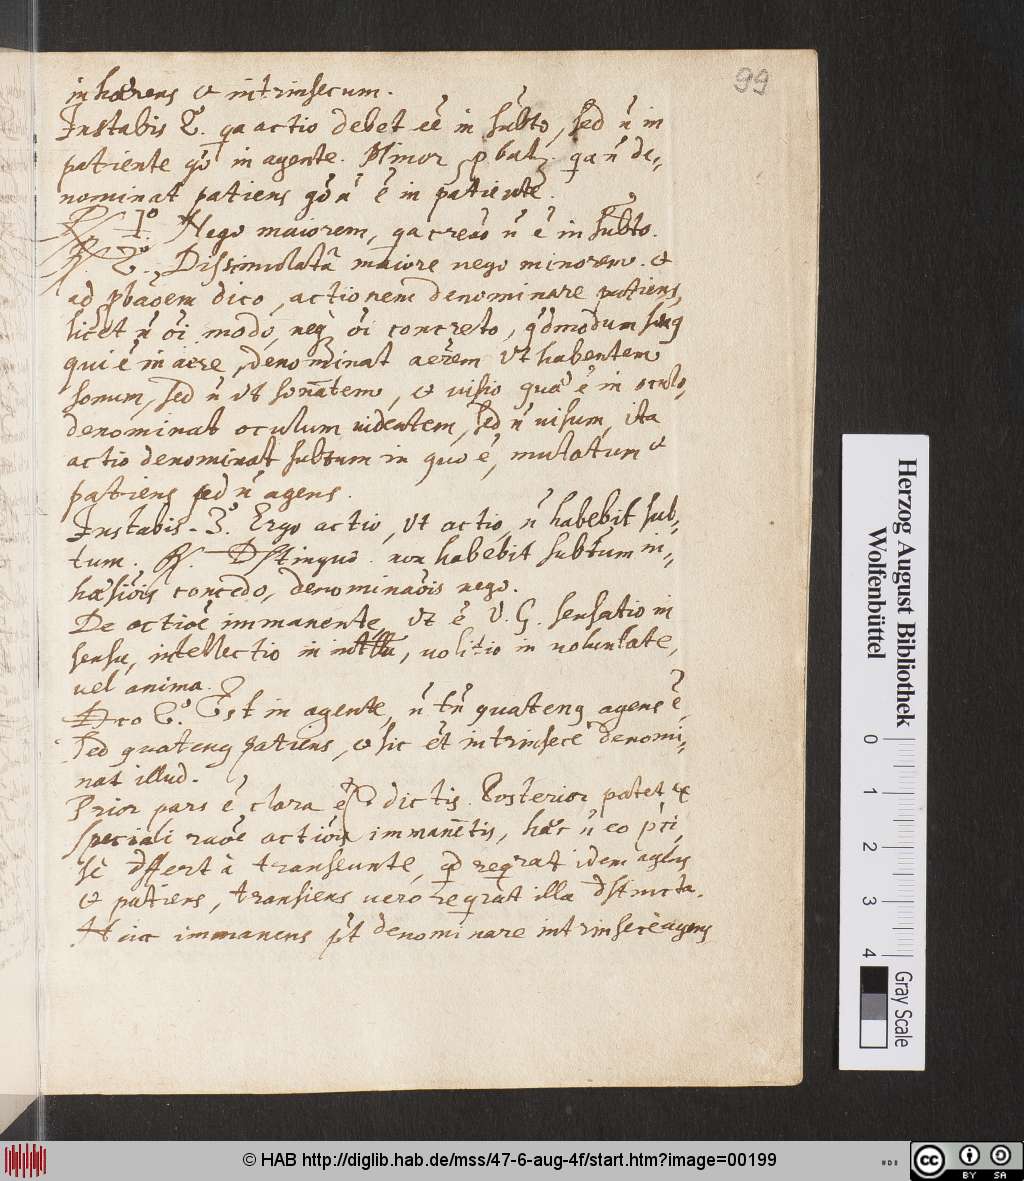 99
inhaerens et intrinsecum.
Instabis 2. qa actio debet eē in sūbto, sed n̄ in
patiente qō in agente. Minor pbat. qa n̄ de-,
nominat patiens gō n̄ ē in patiente.
R. 1º Nego maiorem, qa creāo n̄ ē in subto.
R. 2º. Dissimulatā maiore nego minorem. et
ad pbāoem dico, actionem denominare patiens,
licet n̄ oī modo, neq oī concreto, qdmodum sonus
qui ē in aere, denominat aerem vt habentem
sonum, sed n̄ vt sonantem, et visio quae ē in oculo,
denominat oculum videntem, sed n̄ visum, ita
actio denominat subtum in quo ē, mutatum et
patiens sed n̄ agens.
Instabis. 3º. Ergo actio, vt actio n̄ habebit sub-,
tum. R. Dstinguo. non habebit subtum in-,
haesiōis concedo, denominaōis nego.
De actiōe immanente, vt ē V. G. sensatio in
sensu, intellectio in inttu, volitio in voluntate,
vel anima.
Dco 2º. Est in agente, n̄ tn̄ quatenq agens ē,
sed quatenq patiens, et sic ēt intrinsece denomi-,
nat illud.
Prior pars ē clara ex dictis. Posterior patet ex
speciali raōe actiōis immanētis, haec n̄ eo pci,
sè dffert à transeunte, qd reqrat idem agens
et patiens, transiens vero reqrat illa dstincta.
Huic immanens pt denominare intrinsecè agens
Herzog August Bibliothek
Wolfenbüttel
0 1 2 3 4
Gray Scale
© HAB http://diglib.hab.de/mss/47-6-aug-4f/start.htm?image=00199
cc BY SA